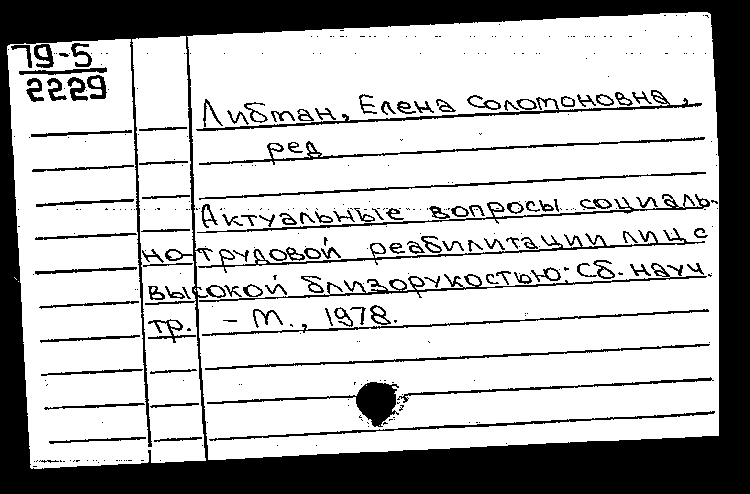 79-5
2229
Либман, Елена Соломоновна,
ред
Актуальные вопросы социаль-
но-трудовой реабилитации лиц с
высокой близорукостью: Сб. науч.
тр. - М., 1978.